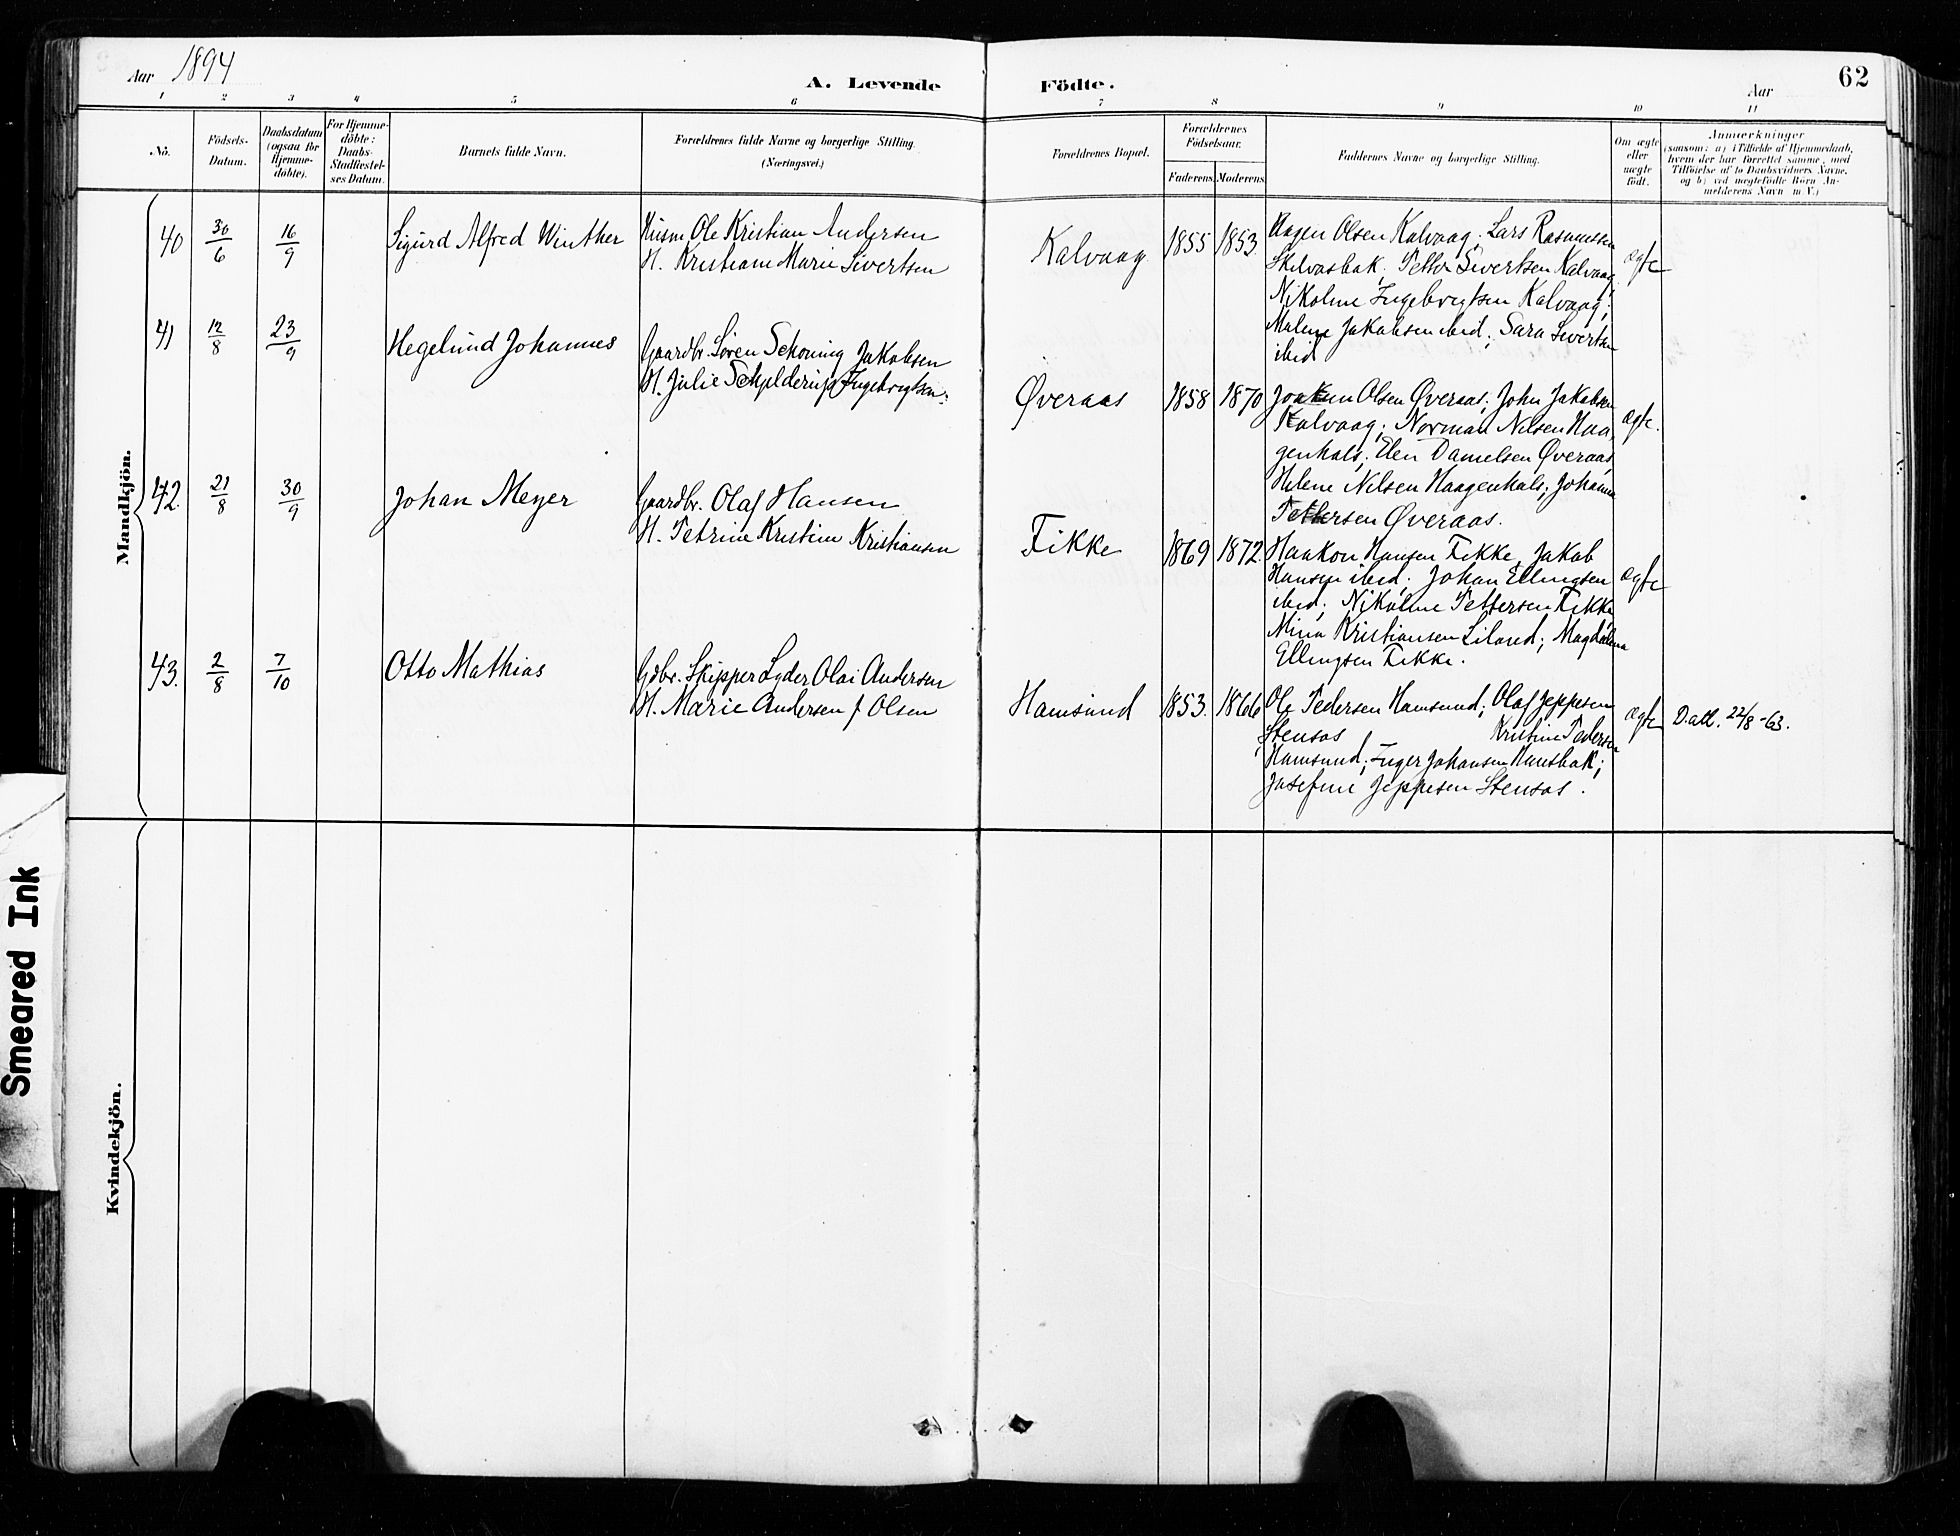 Aar 1894
A. Levende Födte.
Aar
62
1 2 3 4 5 6 7 8 9 10 11
No.
Födsels-
Datum.
Daabsdatum
(ogsaa for
Hjemme-
döbte).
For Hjemme-
döbte:
Daabs-
Stadfæstel-
ses Datum.
Barnets fulde Navn.
Forældrenes fulde Navne og borgerlige Stilling.
(Næringsvei.)
Forældrenes Bopæl.
Forældrenes
Födselsaar.
Faderens. Moderens.
Faddernes Navne og borgerlige Stilling.
Om ægte
eller
uægte
födt.
Anmærkninger
(saasom: a) i Tilfælde af Hjemmedaab,
hvem der har forrettet samme, med
Tilföielse af to Daabsvidners Navne,
og b) ved uægtefödte Börn An-
melderens Navn m. V.)
Mandkjön.
40 30/6 16/9 Sigurd Alfred Winther
Husm Ole Kristian Andersen
H. Kristiane Marie Sivertsen
Kalvaag 1855 1853
Hagen Olsen Kalvaag; Lars Rasmussen
Petter Sivertsen Kalvaag
Nikoline Ingebrigtsen Kalvaag;
Malene Jakobsen ibid; Sara Sivertsen
ibid
ægte
41 12/8 23/9 Hegelund Johannes
Gaardbr. Søren Schøning Jakobsen
H. Julie Schjelderup Ingebrigtsen
Øveraas 1858 1870
Joakim Olsen Øveraas; John Jakobsen
Kalvaag; Norman Nilsen Haa-
genhals; Elen Danielsen Øveraas,
Helene Nilsen Haagenhals; Johanna
Pettersen Øveraas.
ægte.
42. 21/8 30/9 Johan Meyer
Gaardbr. Olaf Hansen
H. Petrine Kristine Kristiansen
Fikke 1869 1872.
Haakon Hansen Fikke, Jakob
Hansen ibid; Johan Ellingsen
ibid; Nikoline Pettersen Fikke
Mina Kristiansen Liland; Magdalena
Ellingsen Fikke.
ægte
43. 2/8 7/10 Otto Mathias
Gdbr. Skipper Lyder Olai Andersen
H. Marie Andersen f Olsen
Hamsund 1853. 1866
Ole Pedersen Hamsund; Olaf Jeppesen
Stensos Kristine Pedersen
Hamsund; Inger Johansen
Josefine Jeppesen Stensos.
ægte
D. atl. 22/8-63.
Kvindekjön.
Smeared Ink